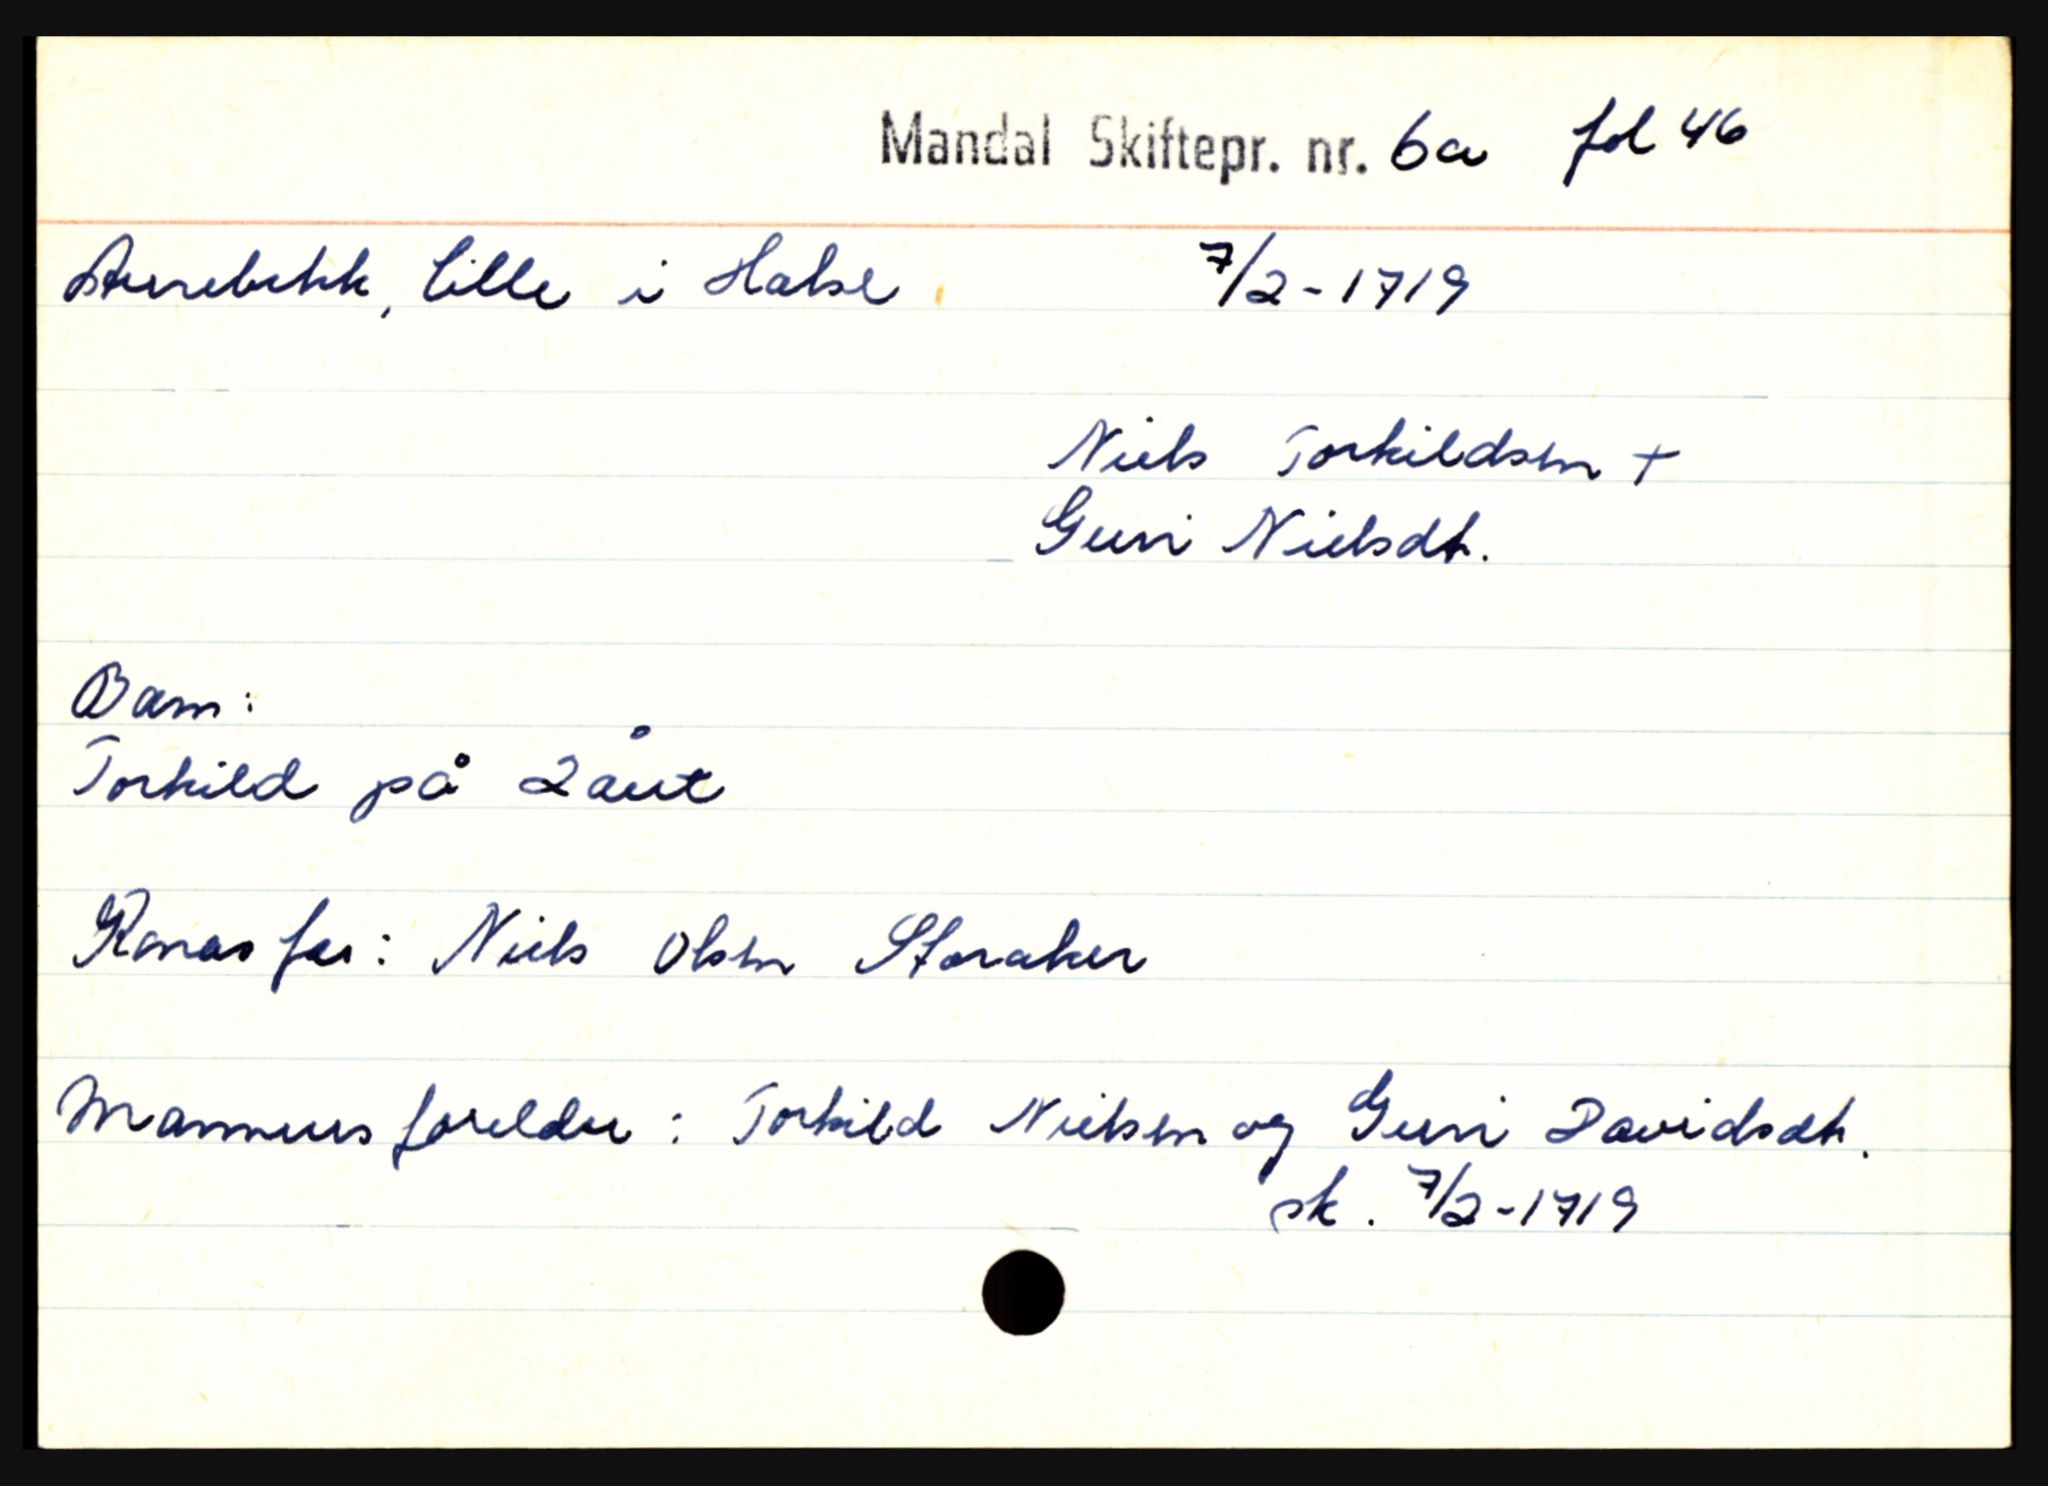 Mandal Skiftepr. nr. 6a fol 46
Aurebekk, Lille i Halse 7/2-1719
Niels Torkildsen +
Guri Nielsdt.
Barn:
Torkild på 2 året
Konas far: Niels Olsen Storaker
Mannens foreldre: Torkild Nielsen og Guri Davidsdt.
sk. 7/2-1719